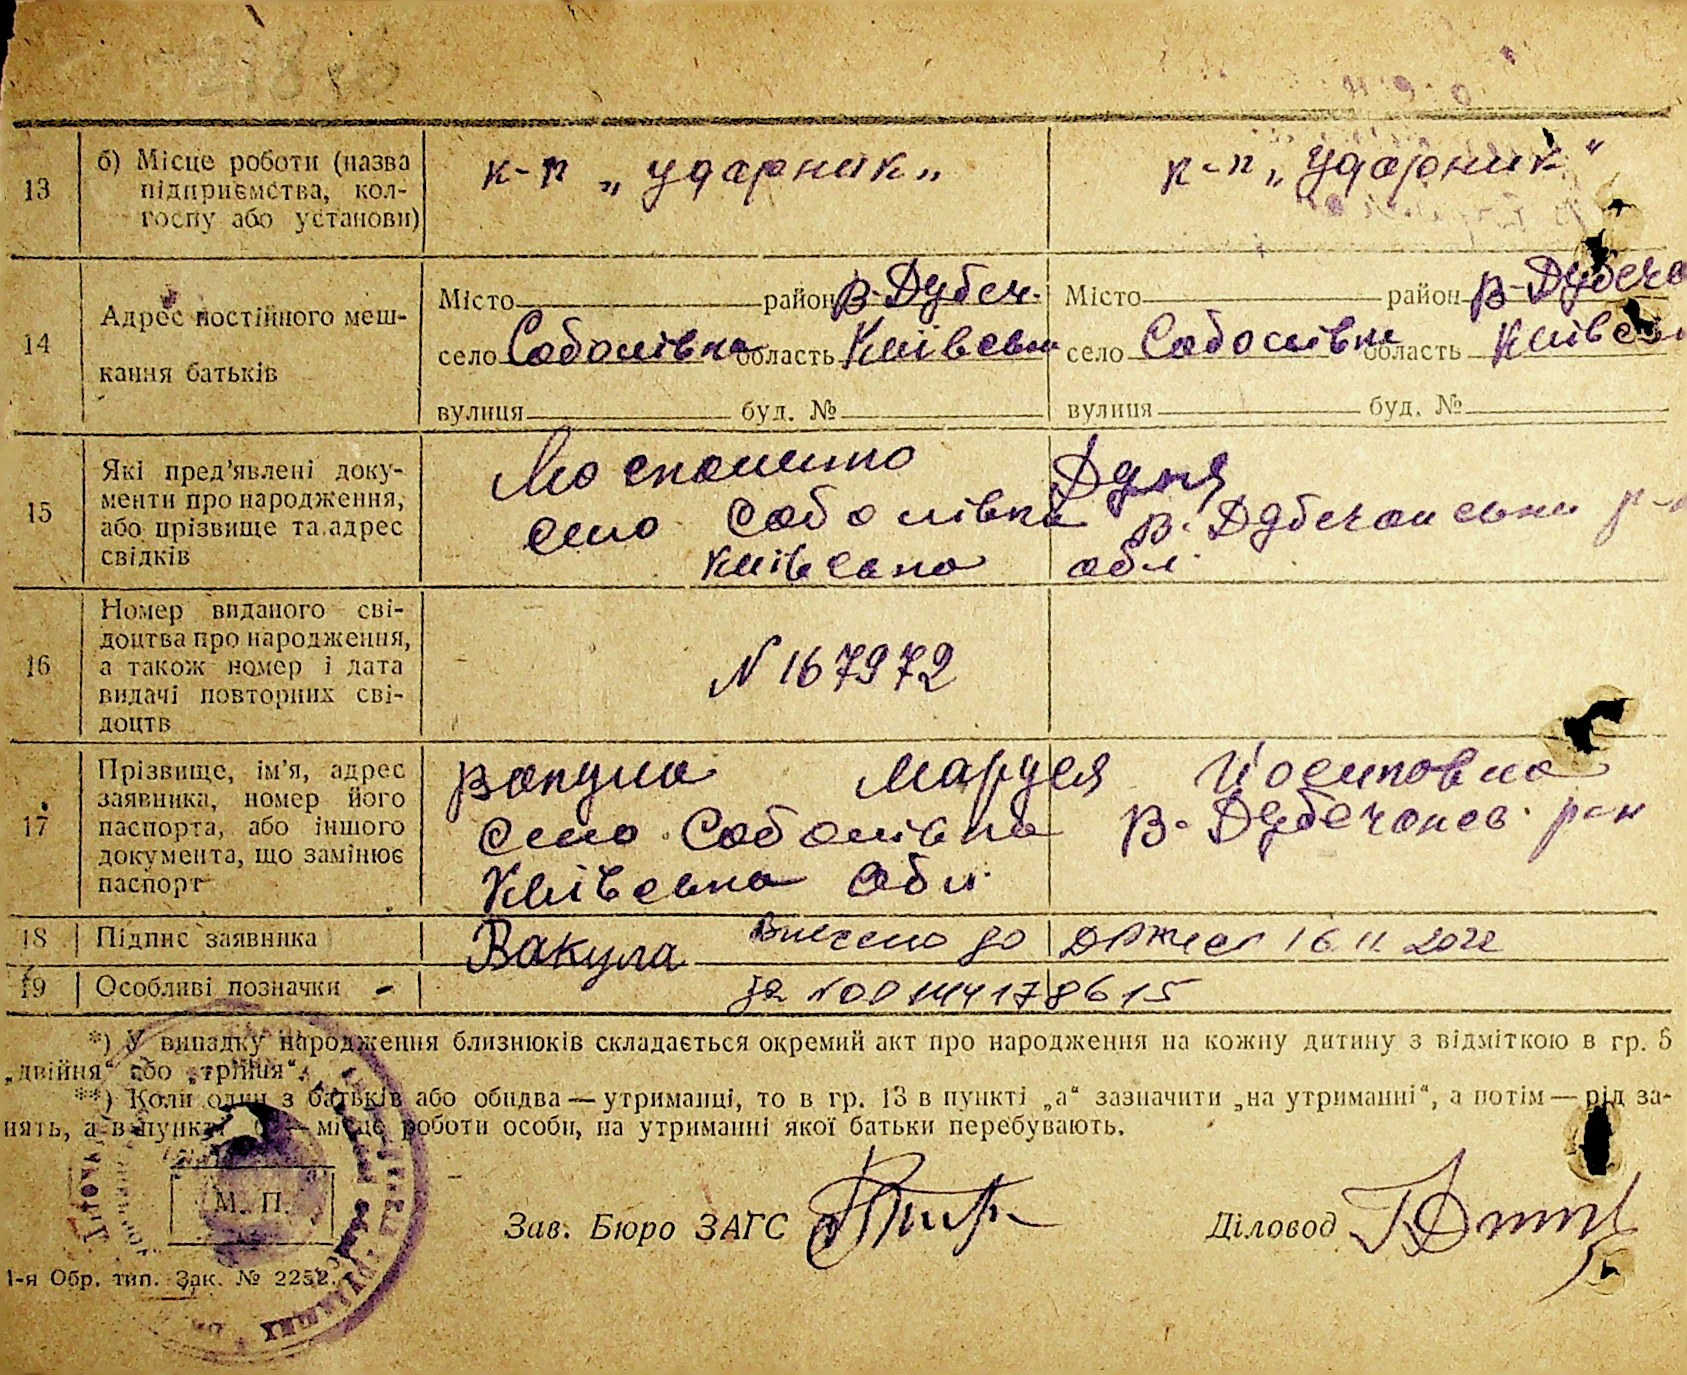 13 б) Місце роботи (назва підприємства, колгоспу або установи) к-п „ударник„ к-п „ударник“
14 Адрес постійного меш-
кання батьків
Місто район В-Дубеч. Місто район В-Дубеча
село Соболівка область Київська село Соболівка область Київська
вулиця буд. № вулиця буд. №
15 Які пред’явлені доку-
менти про народження,
або прізвище та адрес
свідків
Дуня
село Соболівка В-Дубечанськи р-н
Київська обл.
16 Номер виданого сві-
доцтва про народження,
а також номер і дата
видачі повторних сві-
доцтв
N 167972
17 Прізвище, ім’я, адрес
заявника, номер його
паспорта, або іншого
документа, що замінює
паспорт
Вакула Маруся Йосиповна
село Соболівка В-Дубечансь. р-н
Київська обл.
18 Підпис заявника Вакула внесено до ДРАЦСГ 16 11 2022
19 Особливі позначки - за №00144178615
*) У випадку народження близнюків складається окремий акт про народження на кожну дитину з відміткою в гр. 5
„двійня“ або „трійня“.
**) Коли один з батьків або обидва — утриманці, то в гр. 13 в пункті „а“ зазначити „на утриманні“, а потім — рід за-
нять, а в пункті — місце роботи особи, на утриманні якої батьки перебувають.
М. П.
Зав. Бюро ЗАГС Діловод
1-я Обр. тип. Зак. № 2252.